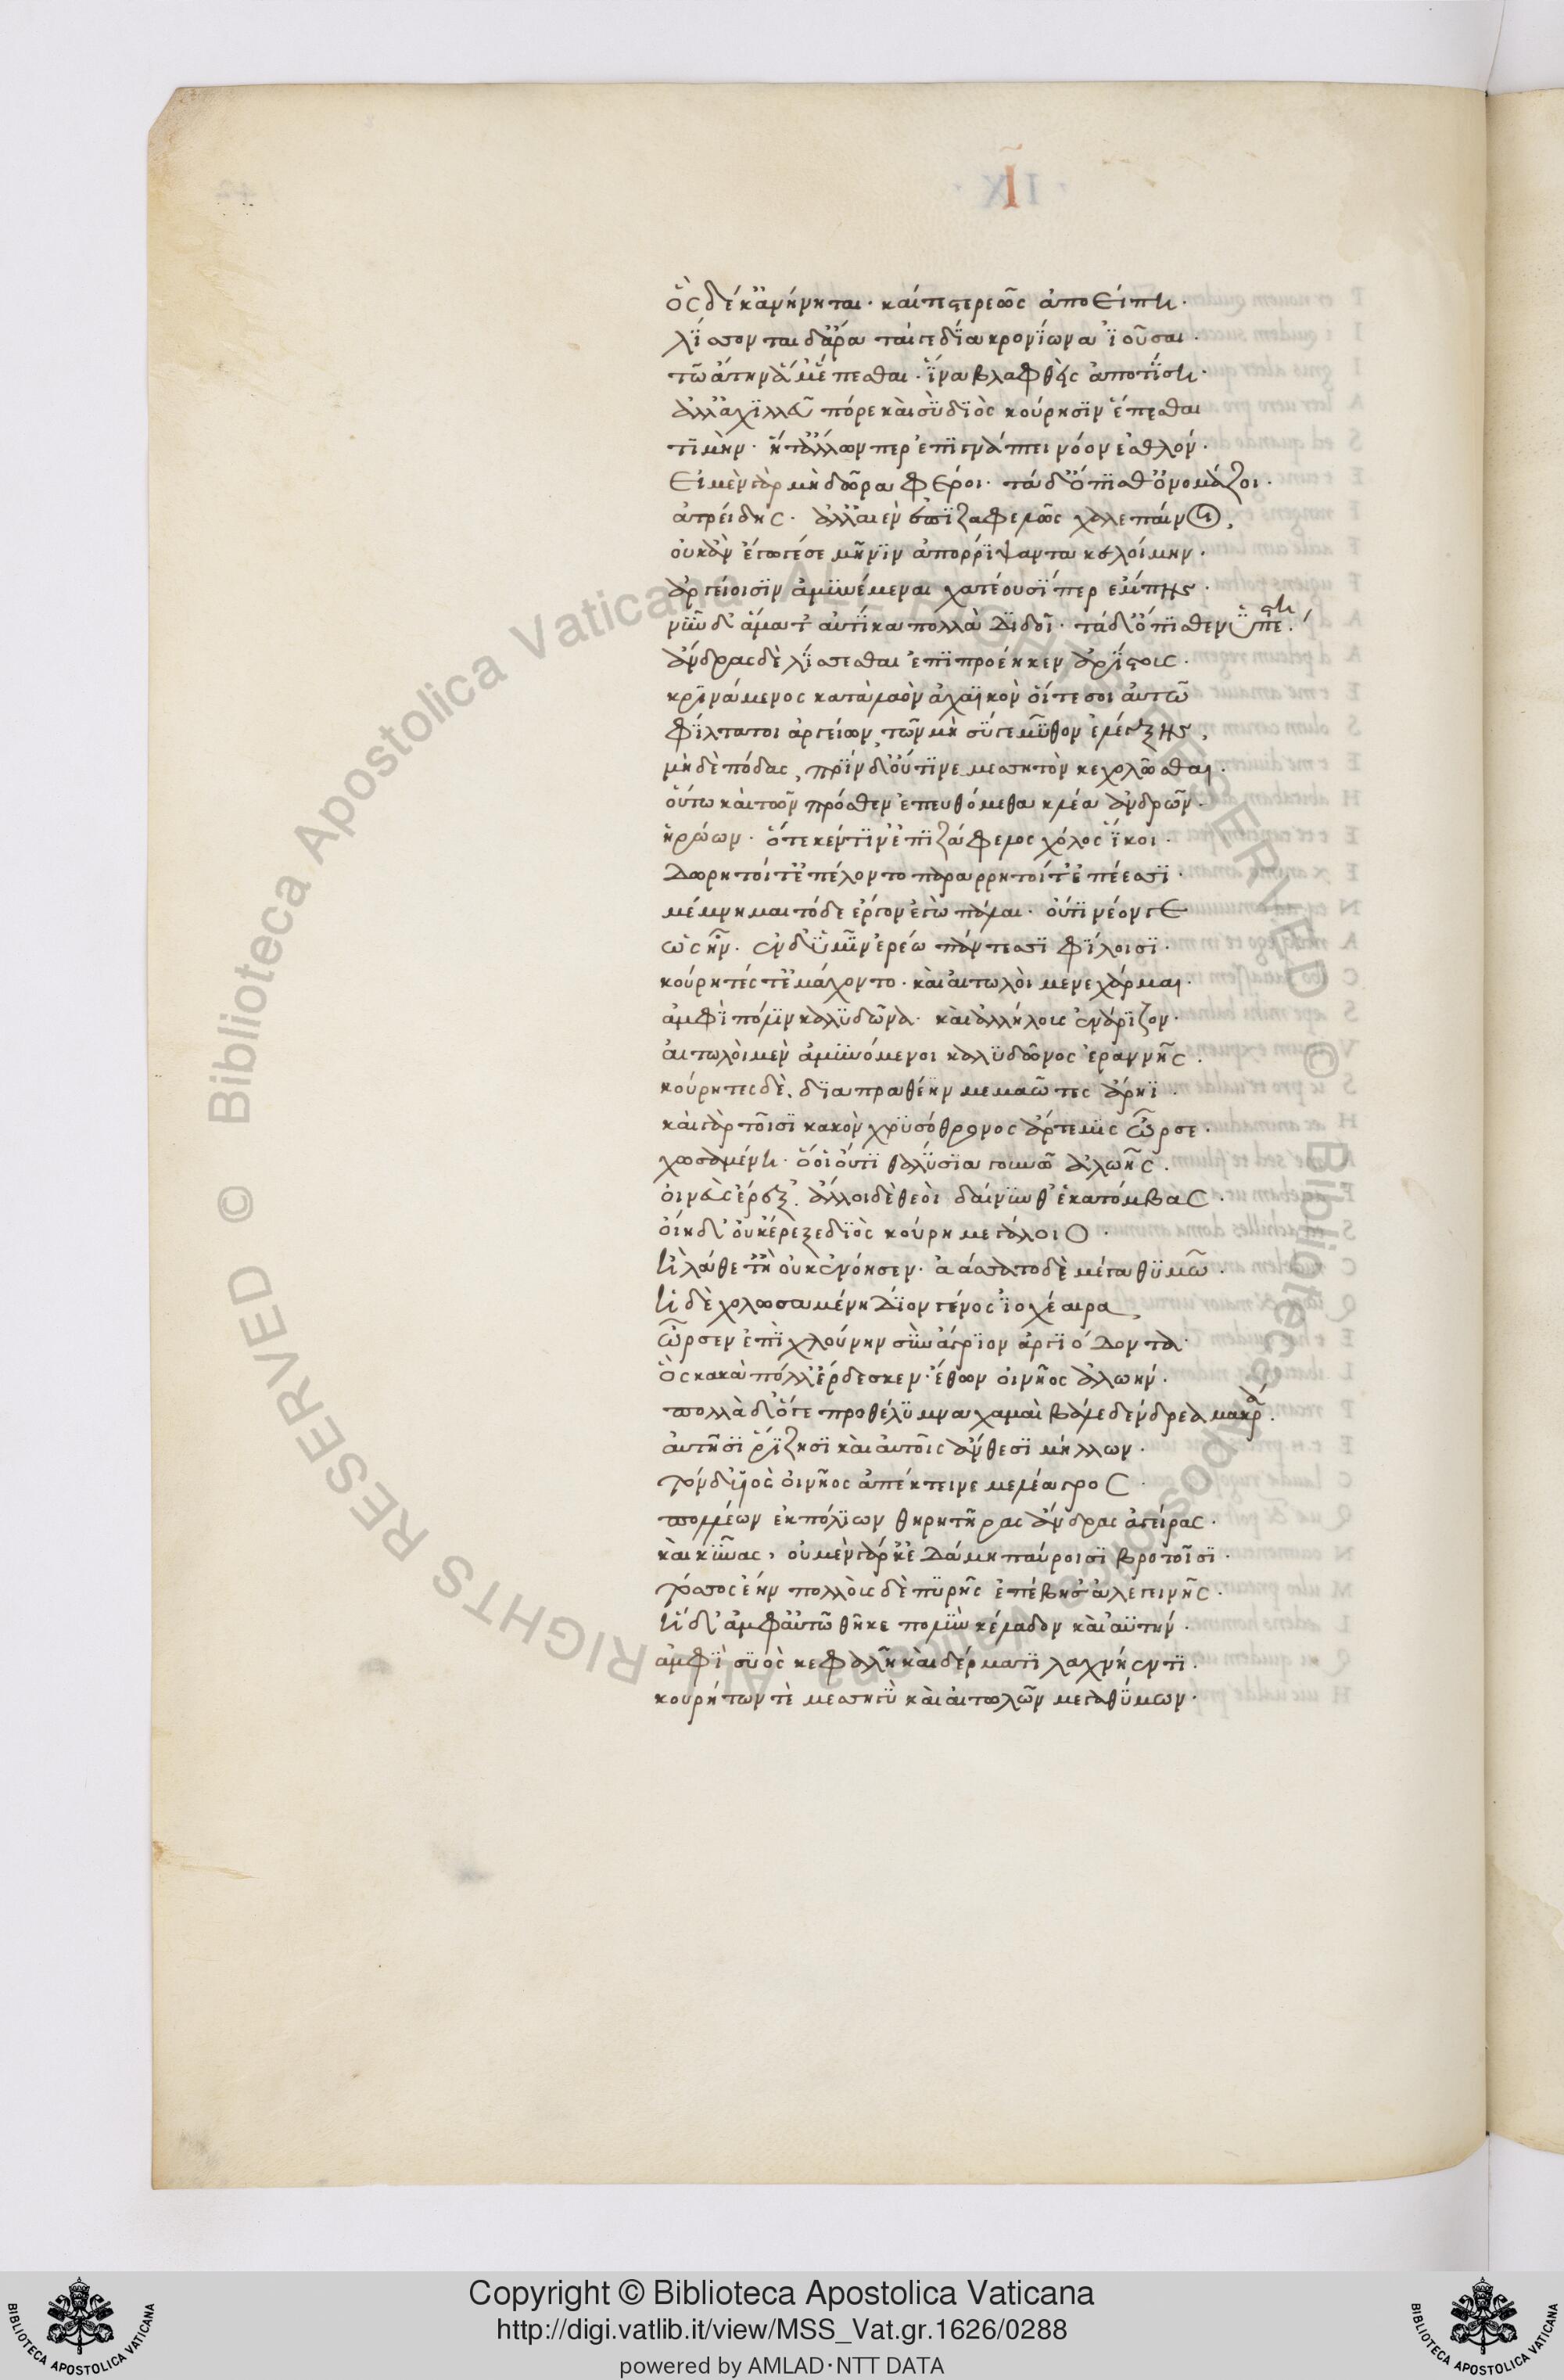 · IX ·
ὃς δέ κ' ἀνήνηται· καί τε στερεῶς ἀποείπη·
λίσσονται δ' ἄρα ταίγε δία κρονίωνα ἰοῦσαι·
τῶ ἄτην ἅμ' ἕπεσθαι· ἵνα βλαφθεὶς ἀποτίση·
ἀλλ' ἀχιλλεῦ πόρε καὶ σὺ διὸς κούρησιν ἕπεσθαι
τιμὴν· ἥτ' ἄλλων περ ἐπιγνάπτει νόον ἐσθλόν·
Εἰ μὲν γὰρ μὴ δῶρα φέροι· τὰ δ' ὄπισθ' ὀνομάζοι·
ἀτρείδης· ἀλλ' αἰὲν ἐπιζαφελῶς χαλεπαίνοι,
οὐκ ἄν ἔγωγέ σε μῆνιν ἀπορρίψαντα κελοίμην·
ἀργείοισιν ἀμυνέμεναι χατέουσί περ ἔμπης·
νῦν δ' ἅμα τ' αὐτίκα πολλὰ διδοῖ· τὰ δ' ὄπισθεν ὑπέστη·
ἄνδρας δὲ λίσσεσθαι ἐπιπροέηκεν ἀρίστους·
κρινάμενος κατὰ λαὸν ἀχαιικὸν οἵ τε σοι αὐτῶ
φίλτατοι ἀργείων, τῶν μὴ σύγε μῦθον ἐλέγξης,
μὴ δὲ πόδας, πρίν δ' οὔτι νεμεσσητὸν κεχολῶσθαι·
οὕτω καὶ τῶν πρόσθεν ἐπευθόμεθα κλέα ἀνδρῶν·
ἡρώων· ὅτε κέν τιν' ἐπιζάφελος χόλος ἵκοι·
Δωρητοί τ' ἐπέλοντο παραρρητοί τ' ἐπέεσσι·
μέμνημαι τόδε ἔργον ἐγὼ πάλαι· οὔτι νέον γε
ὡς ἦν· ἐν δ' ὑμῖν ἐρέω πάντεσσι φίλοισι·
κούρητές τ' ἐμάχοντο· καὶ αἰτωλοὶ μενεχάρμαι·
ἀμφὶ πόλιν καλυδῶνα· καὶ ἀλλήλους ἐνάριζον·
αἰτωλοὶ μὲν ἀμυνόμενοι καλυδῶνος ἐραννῆς·
κούρητες δὲ. διαπραθέην μεμαῶτες ἄρηι·
καὶ γὰρ τοῖσι κακὸν χρυσόθρονος ἄρτεμις ὦρσε·
χωσαμένη· ὅ οἱ οὔτι θαλύσια γουνῶ ἀλωῆς·
οἰνεὺς ἔρεξ'. ἄλλοι δὲ θεοὶ δαίνυνθ' ἑκατόμβας·
οἴη δ' οὐκ ἔρεξε διὸς κούρη μεγάλοιο·
ἢ λάθετ' ἢ οὐκ ἐνόησεν· ἀάσσατο δὲ μέγα θυμῶ·
ἡ δὲ χολωσαμένη Δῖον γένος ἰοχέαιρα,
ὦρσεν ἐπὶ χλούνην σῦν ἄγριον ἀργιόδοντα·
ὃς κακὰ πόλλ' ἔρδεσκεν· ἔθων οἰνῆος ἀλωήν·
πολλὰ δ' ὅγε προθέλυμνα χαμαὶ βάλε δένδρεα μακρά·
αὐτῆσι ῥίζησι καὶ αὐτοῖς ἄνθεσι μήλων·
τόν δ' υἱὸς οἰνῆος ἀπέκτεινε μελέαγρος·
πολλέων ἐκ πολίων θηρητῆρας ἄνδρας ἀγείρας·
καὶ κύνας, οὐ μὲν γάρ κ' ἐδάμη παύροισι βροτοῖσι·
τόσσος ἔην πολλοὺς δὲ πυρῆς ἐπέβησ' ἀλεγεινῆς·
ἡ δ' ἀμφ' αὐτῶ θῆκε πολὺν κέλαδον καὶ αὐτήν·
ἀμφὶ συὸς κεφαλῆ καὶ δέρματι λαχνήεντι·
κουρήτων τὲ μεσηγὺ καὶ αἰτωλῶν μεγαθύμων·
Copyright © Biblioteca Apostolica Vaticana
http://digi.vatlib.it/view/MSS_Vat.gr.1626/0288
powered by AMLAD·NTT DATA
BIBLIOTECA APOSTOLICA VATICANA
BIBLIOTECA APOSTOLICA VATICANA
© Biblioteca Apostolica Vaticana ALL RIGHTS RESERVED
© Biblioteca Apostolica Vaticana ALL RIGHTS RESERVED